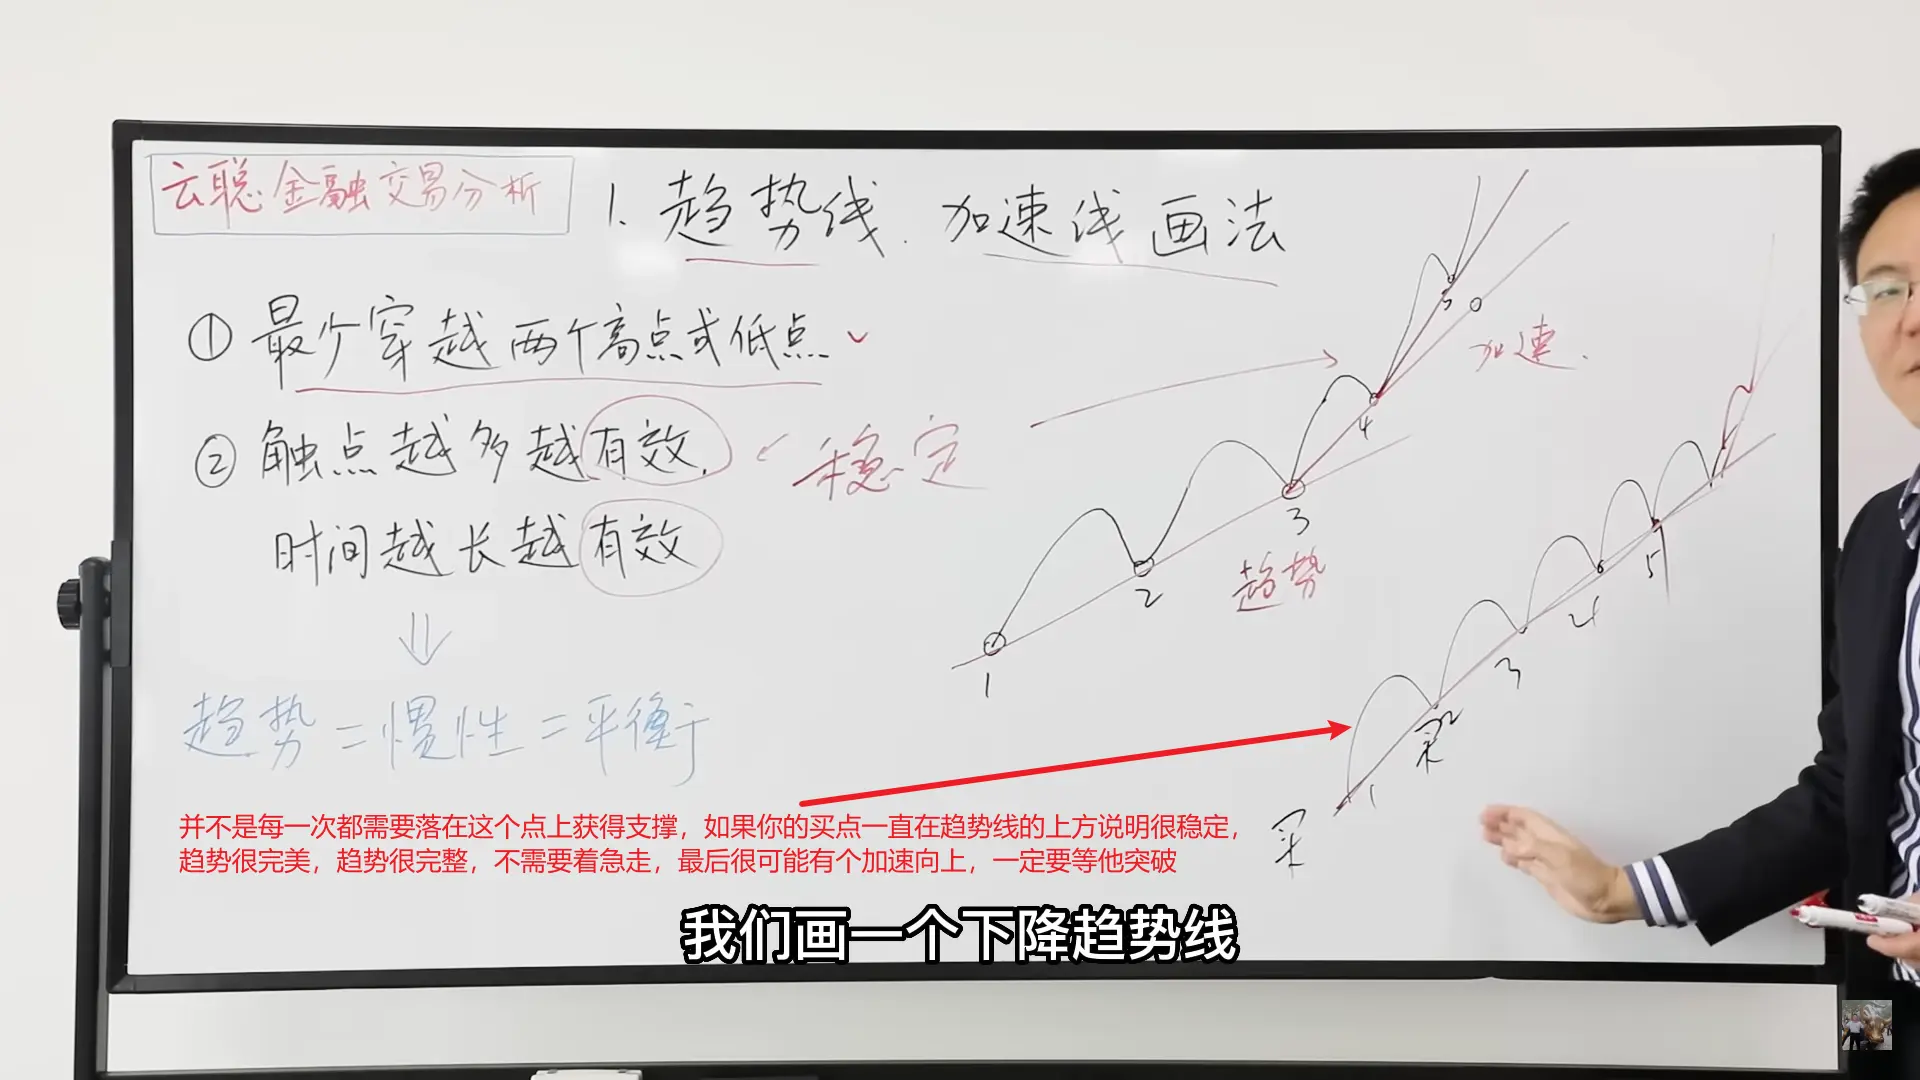 云聪金融交易分析
1. 趋势线.加速线画法
① 最少穿越两个高点或低点
② 触点越多越有效.
稳定
时间越长越有效
趋势=惯性=平衡
加速.
趋势
1
2
3
4
5
1
2
3
4
5
买
买
并不是每一次都需要落在这个点上获得支撑，如果你的买点一直在趋势线的上方说明很稳定，
趋势很完美，趋势很完整，不需要着急走，最后很可能有个加速向上，一定要等他突破
我们画一个下降趋势线